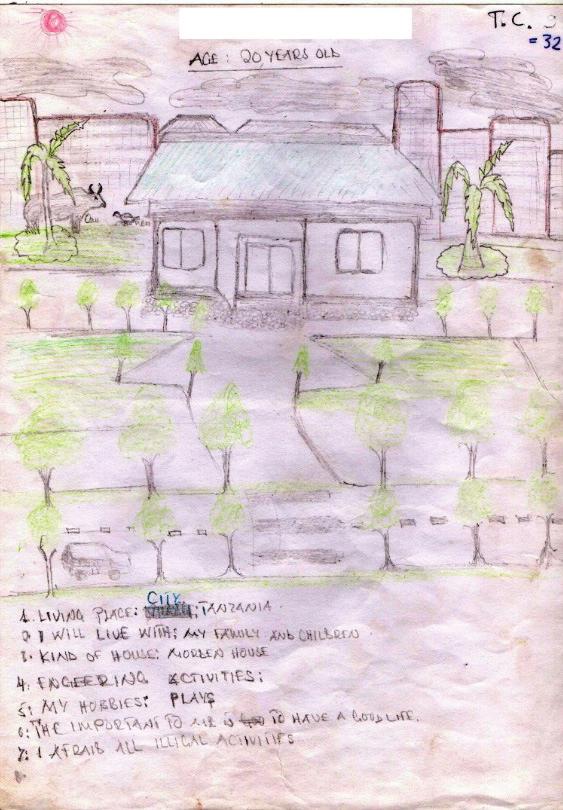 T.C.
=32
AGE: 20 YEARS OLD
1. LIVING PLACE: CITY; TANZANIA.
2. I WILL LIVE WITH: MY FAMILY AND CHILDREN
3. KIND OF HOUSE: MORDEN HOUSE
4. ENGEERING ACTIVITIES:
5: MY HOBBIES: PLAYS
6: THE IMPORTANT TO ME IS TO HAVE A GOOD LIFE.
7: I AFRAIS ALL ILLIGAL ACTIVITIES